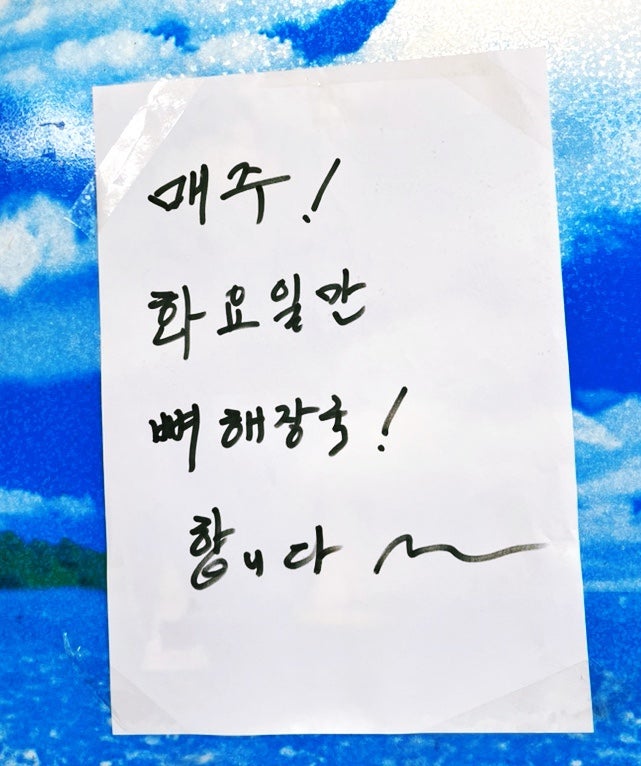 매주!
화요일만
뼈해장국!
합니다~